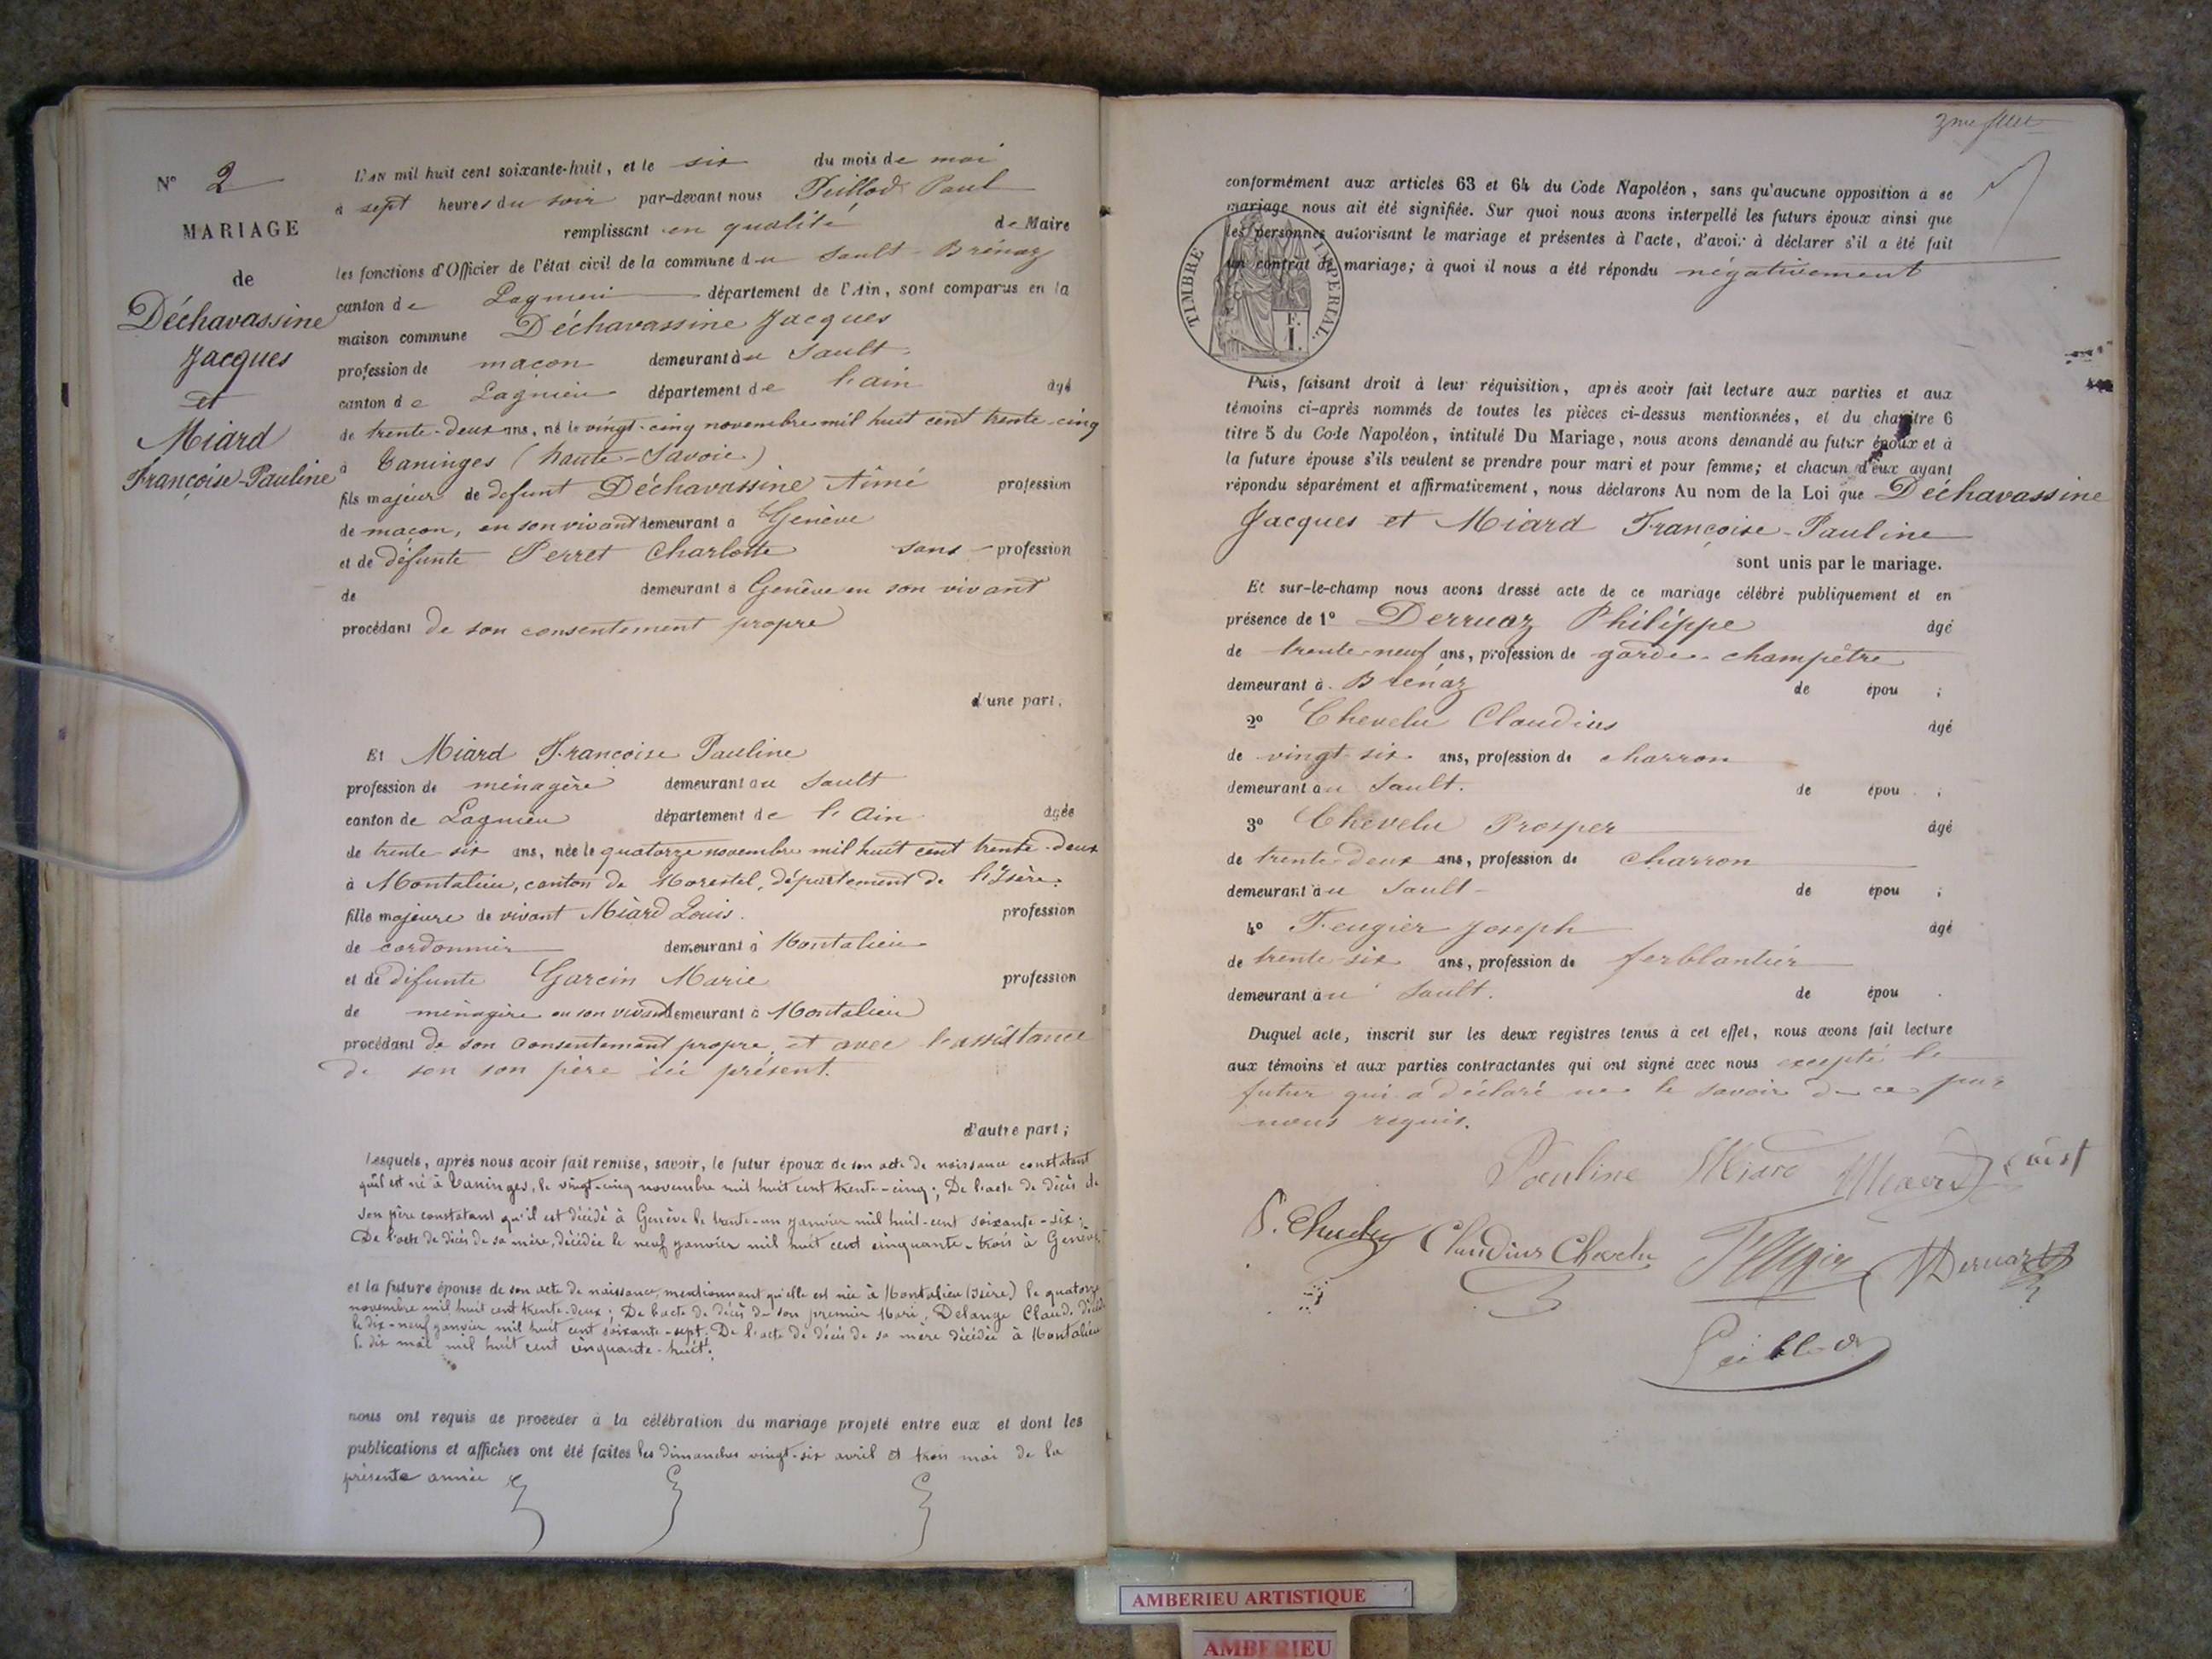 N° 2
MARIAGE
de
Déchavassine
Jacques
et
Miard
Françoise-Pauline
L'an mil huit cent soixante-huit, et le six du mois de mai
à sept heures du soir par-devant nous Peillod Paul
remplissant en qualité de Maire
les fonctions d'Officier de l'état civil de la commune du Sault-Brénaz
canton de Lagnieu département de l'Ain, sont comparus en la
maison commune Déchavassine Jacques
profession de maçon demeurant au Sault
canton de Lagnieu département de l'ain âgé
de trente-deux ans, né le vingt-cinq novembre mil huit cent trente-cinq
à Taninges (haute-Savoie)
fils majeur de defunt Déchavassine Aimé profession
de maçon, en son vivant demeurant à Genève
et de défunte Perret Charlotte sans profession
de demeurant à Genève en son vivant
procédant de son consentement propre
d'une part,
Et Miard Françoise Pauline
profession de ménagère demeurant au Sault
canton de Lagnieu département de l'Ain âgée
de trente-six ans, née le quatorze novembre mil huit cent trente-deux
à Montalieu, canton de Morestel, département de l'Isère.
fille majeure de vivant Miard Louis. profession
de cordonnier demeurant à Montalieu
et de défunte Garcin Marie profession
de ménagère en son vivant demeurant à Montalieu
procédant de son consentement propre, et avec l'assistance
de son son père ici présent.
d'autre part;
Lesquels, après nous avoir fait remise, savoir, le futur époux de son acte de naissance constatant
qu'il est né à Taninges, le vingt-cinq novembre mil huit cent trente-cinq; De l'acte de décès de
son père constatant qu'il est décédé à Genève le trente-un janvier mil huit-cent soixante-six;
De l'acte de décès de sa mère, décédée le neuf janvier mil huit cent cinquante-trois à Genève.
et la future épouse de son acte de naissance, mentionnant qu'elle est née à Montalieu (Isère) le quatorze
novembre mil huit cent trente-deux; De l'acte de décès de son premier Mari, Delange Claude décédé
le dix-neuf janvier mil huit cent soixante-sept; De l'acte de décès de sa mère décédée à Montalieu
le dix mai mil huit cent cinquante-huit;
nous ont requis de procéder à la célébration du mariage projeté entre eux et dont les
publications et affiches ont été faites les dimanches vingt-six avril et trois mai de la
présente année
3me fllet
conformément aux articles 63 et 64 du Code Napoléon, sans qu'aucune opposition à ce
mariage nous ait été signifiée. Sur quoi nous avons interpellé les futurs époux ainsi que
les personnes autorisant le mariage et présentes à l'acte, d'avoir à déclarer s'il a été fait
un contrat de mariage; à quoi il nous a été répondu négativement
TIMBRE IMPERIAL.
F.
I.
Puis, faisant droit à leur réquisition, après avoir fait lecture aux parties et aux
témoins ci-après nommés de toutes les pièces ci-dessus mentionnées, et du chapitre 6
titre 5 du Code Napoléon, intitulé Du Mariage, nous avons demandé au futur époux et à
la future épouse s'ils veulent se prendre pour mari et pour femme; et chacun d'eux ayant
répondu séparément et affirmativement, nous déclarons Au nom de la Loi que Déchavassine
Jacques et Miard Françoise-Pauline
sont unis par le mariage.
Et sur-le-champ nous avons dressé acte de ce mariage célébré publiquement et en
présence de 1° Derruaz Philippe âgé
de trente-neuf ans, profession de garde-champêtre
demeurant à Brénaz de épou ;
2° Chevelu Claudius âgé
de vingt-six ans, profession de charron
demeurant au Sault. de épou ;
3° Chevelu Prosper âgé
de trente-deux ans, profession de charron
demeurant au Sault de épou ;
4° Feugier Joseph âgé
de trente-six ans, profession de ferblantier
demeurant au Sault. de épou .
Duquel acte, inscrit sur les deux registres tenus à cet effet, nous avons fait lecture
aux témoins et aux parties contractantes qui ont signé avec nous excepté le
futur qui a déclaré ne le savoir de ce par
nous requis.
Pauline Miard
P. Chevelu Claudius Chevelu Feugier Derruaz
Peillod
AMBERIEU ARTISTIQUE
AMBERIEU